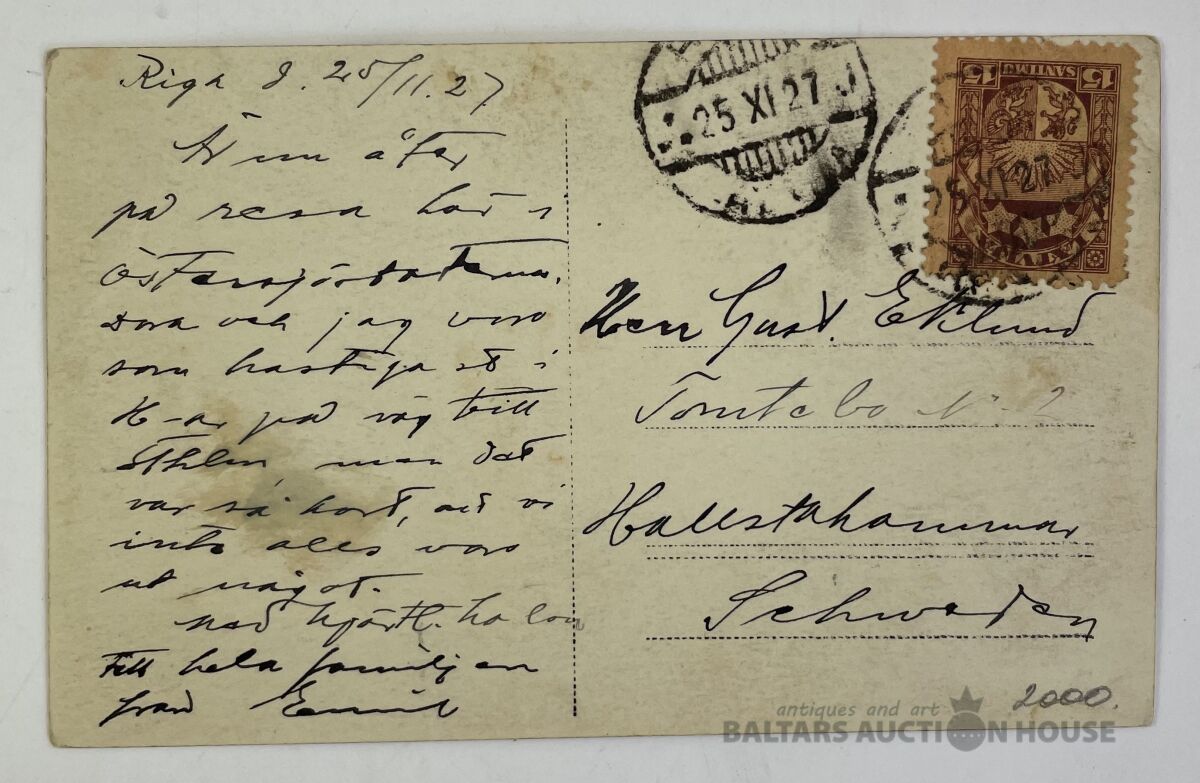 Riga d. 25/11.27
Är nu åter
på resa här i
Östersjöstaterna.
Dora och jag voro
som hastigast i
H-ar på väg till
Sthlm men det
var så kort, att vi
inte alls voro
ut något.
Med hjärtl. hälsn
till hela familjen
från Emil
25 XI 27
RIGA
15 SANTIMU 15
LATVIJA
25 XI 27
Herr Gust. Eklund
Tomtebo N. 2
Hallstahammar
Schweden
2000.
antiques and art
BALTARS AUCTION HOUSE